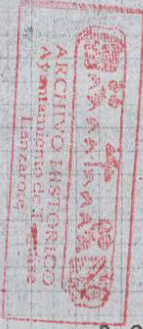 ARCHIVO HISTORICO
Ayuntamiento de Teguise
Lanzarote